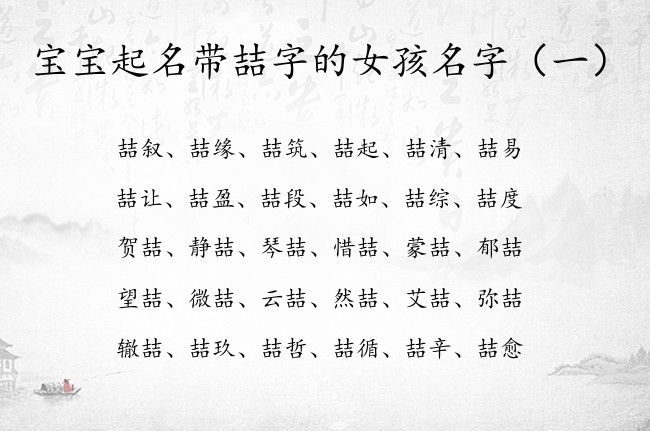 宝宝起名带喆字的女孩名字（一）
喆叙、喆缘、喆筑、喆起、喆清、喆易
喆让、喆盈、喆段、喆如、喆综、喆度
贺喆、静喆、琴喆、惜喆、蒙喆、郁喆
望喆、微喆、云喆、然喆、艾喆、弥喆
辙喆、喆玖、喆哲、喆循、喆辛、喆愈